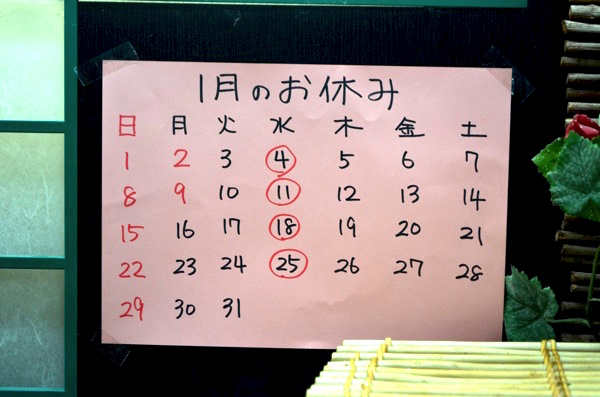 1月のお休み
日 月 火 水 木 金 土
1 2 3 4 5 6 7
8 9 10 11 12 13 14
15 16 17 18 19 20 21
22 23 24 25 26 27 28
29 30 31